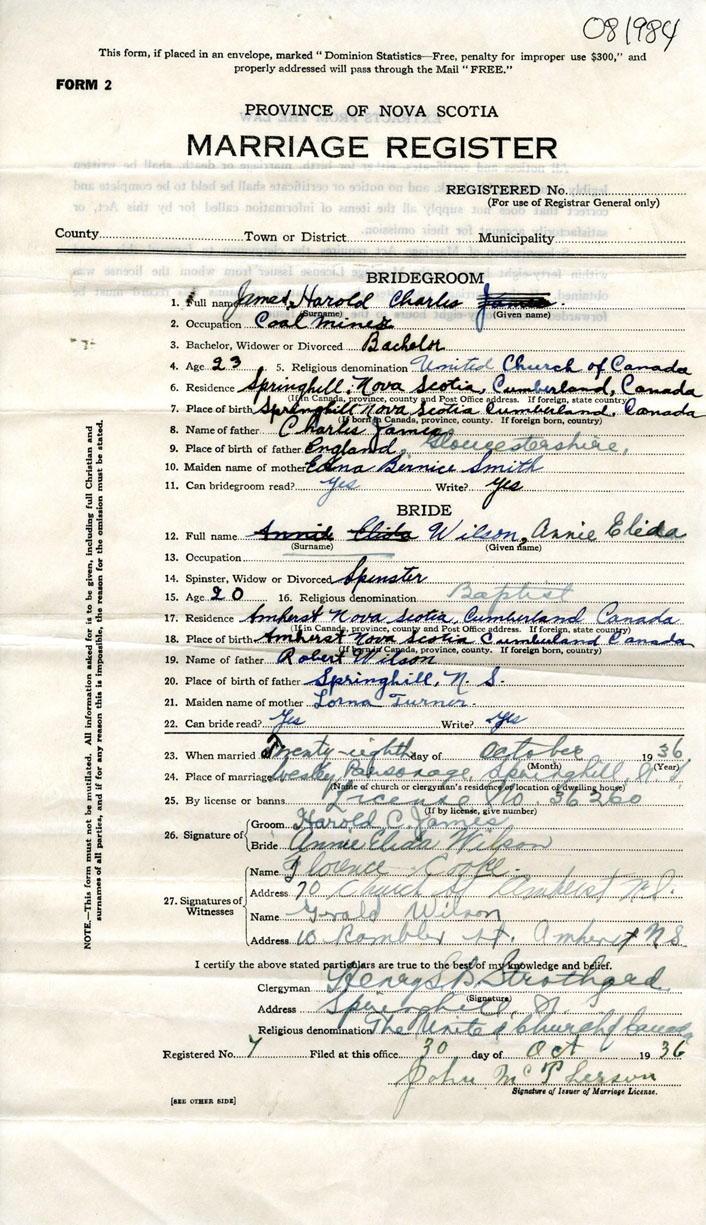 081984
This form, if placed in an envelope, marked "Dominion Statistics—Free, penalty for improper use $300," and
properly addressed will pass through the Mail "FREE."
FORM 2
PROVINCE OF NOVA SCOTIA
MARRIAGE REGISTER
REGISTERED No.
(For use of Registrar General only)
County Town or District Municipality
BRIDEGROOM
1. Full name James, Harold Charles James
(Surname) (Given name)
2. Occupation Coal Miner
3. Bachelor, Widower or Divorced Bachelor
4. Age 23 5. Religious denomination United Church of Canada
6. Residence Springhill, Nova Scotia, Cumberland, Canada
(If in Canada, province, county and Post Office address. If foreign, state country)
7. Place of birth Springhill Nova Scotia Cumberland, Canada
(If born in Canada, province, county. If foreign born, country)
8. Name of father Charles James
9. Place of birth of father England, Gloucestershire,
10. Maiden name of mother Edna Bernice Smith
11. Can bridegroom read? Yes Write? Yes
BRIDE
12. Full name Annie Elida Wilson, Annie Elida
(Surname) (Given name)
13. Occupation
14. Spinster, Widow or Divorced Spinster
15. Age 20 16. Religious denomination Baptist
17. Residence Amherst Nova Scotia, Cumberland Canada
(If in Canada, province, county and Post Office address. If foreign, state country)
18. Place of birth Amherst Nova Scotia Cumberland, Canada
(If born in Canada, province, county. If foreign born, country)
19. Name of father Robert Wilson
20. Place of birth of father Springhill, N. S.
21. Maiden name of mother Lorna Turner
22. Can bride read? Yes Write? Yes
23. When married Twenty-eighth day of October 1936
(Month) (Year)
24. Place of marriage Wesley Parsonage, Springhill, N.S.
(Name of church or clergyman's residence or location of dwelling house)
25. By license or banns License No. 36260
(If by license, give number)
26. Signature of { Groom Harold C. James
Bride Annie Elida Wilson
27. Signatures of Witnesses { Name Florence Cooke
Address 70 Church St Amherst N.S.
Name Gerald Wilson
Address 10 Rambler St. Amherst N.S.
I certify the above stated particulars are true to the best of my knowledge and belief.
Clergyman Henry S.B. Strothard
(Signature)
Address Springhill, N.S.
Religious denomination The United Church of Canada
Registered No. 7 Filed at this office 30 day of Oct 1936
John McPherson
Signature of Issuer of Marriage License.
[SEE OTHER SIDE]
NOTE.—This form must not be mutilated. All information asked for is to be given, including full Christian and
surnames of all parties, and if for any reason this is impossible, the reason for the omission must be stated.